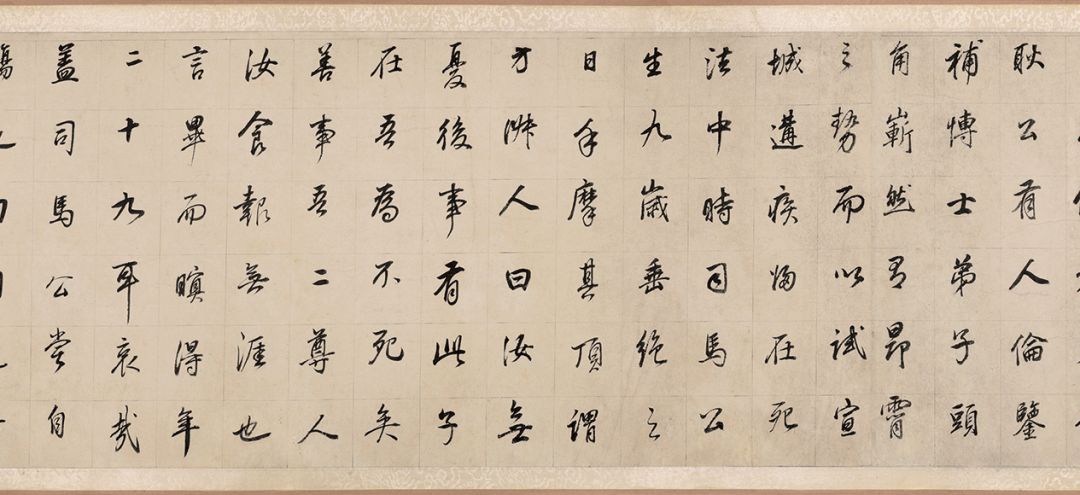 耿公有人倫鑒
補博士弟子頭
角嶄然有昂霄
之勢而以試宣
城遘疾歸在死
法中時司馬公
生九歲垂絕之
日手摩其頂謂
方淑人曰汝無
憂後事有此子
在吾為不死矣
善事吾二尊人
汝食報無涯也
言畢而瞑得年
二十九耳哀哉
蓋司馬公嘗自